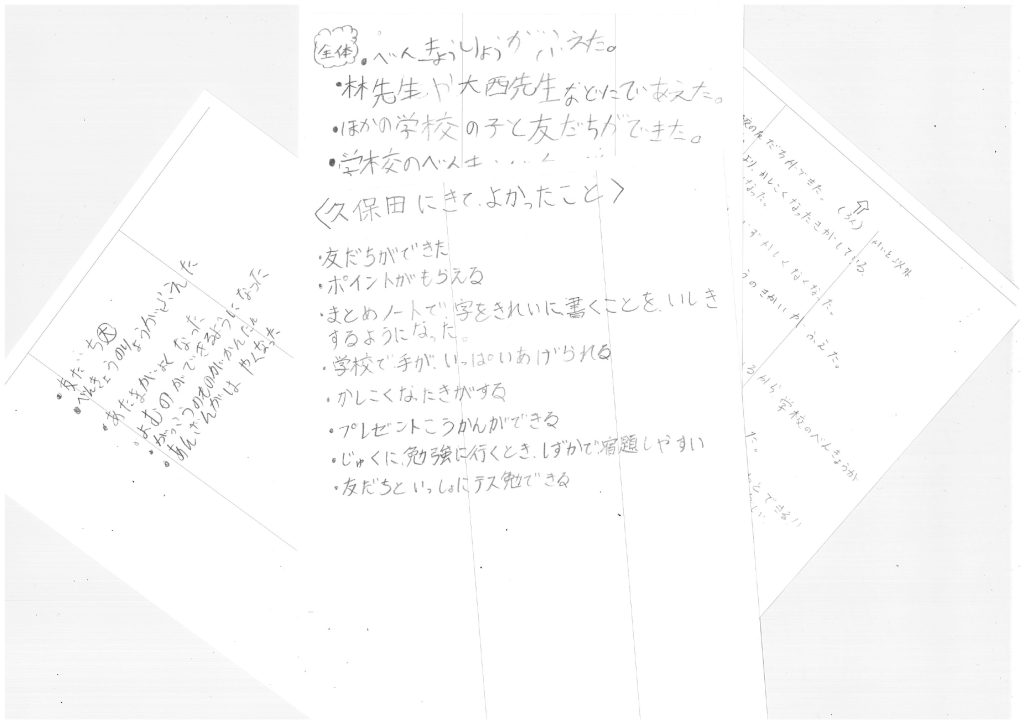 全体
・べんきょうりょうがふえた。
・林先生や大西先生などにであえた。
・ほかの学校の子と友だちができた。
・学校のべん
〈久保田にきて、よかったこと〉
・友だちができた
・ポイントがもらえる
・まとめノートで字をきれいに書くことを、いしき
するようになった。
・学校で手が、いっぱいあげられる
・かしこくなったきがする
・プレゼントこうかんができる
・じゅくに、勉強に行くとき、しずかで宿題しやすい
・友だちといっしょにテス勉できる
・友だち
・べんきょうのりょうがふえた
・あたまがよくなった
・よむのができるようになった
・がっこうのものがかんたん
・あんさんがはやくなった
友だちができた。
より、かしこくなったきがしている。
なった。
ずかしくなくなった。
うのきかいがふえた。
るから学校のべんきょうが
た。
とできる!!